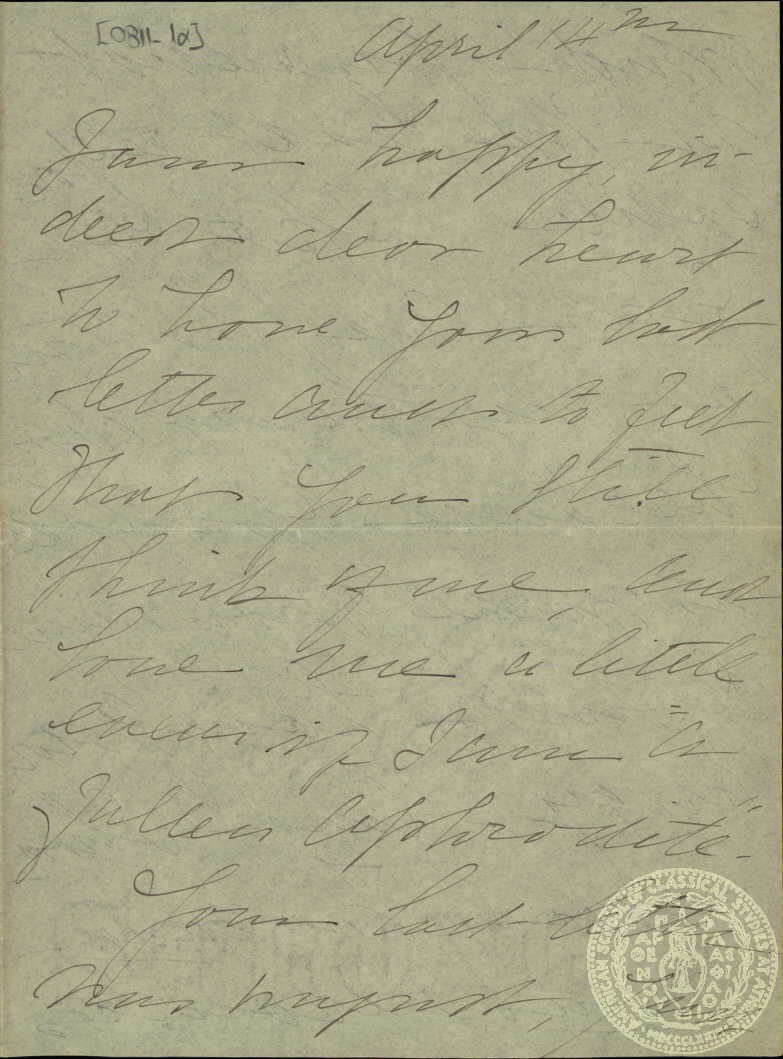 [0811-1a]
April 14th
I am happy, in-
deed dear heart
to have your last
letter and to feel
that you still
think of me, and
love me a little
even if I am "a
fallen Aphrodite".
Your last letter
was unjust,
AMERICAN SCHOOL OF CLASSICAL STUDIES AT ATHENS
ΠΑΡΘΕΝΟΥ ΦΙΛΑΣ ΦΙΛΟΙ